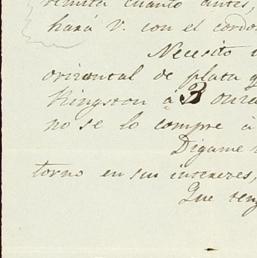 remita cuanto antes,
hará V. con el cordo
Necesito
orizontal de plata q
Kingston a B
no se lo compre á
Digame
torno en sus intereses,
Que ten